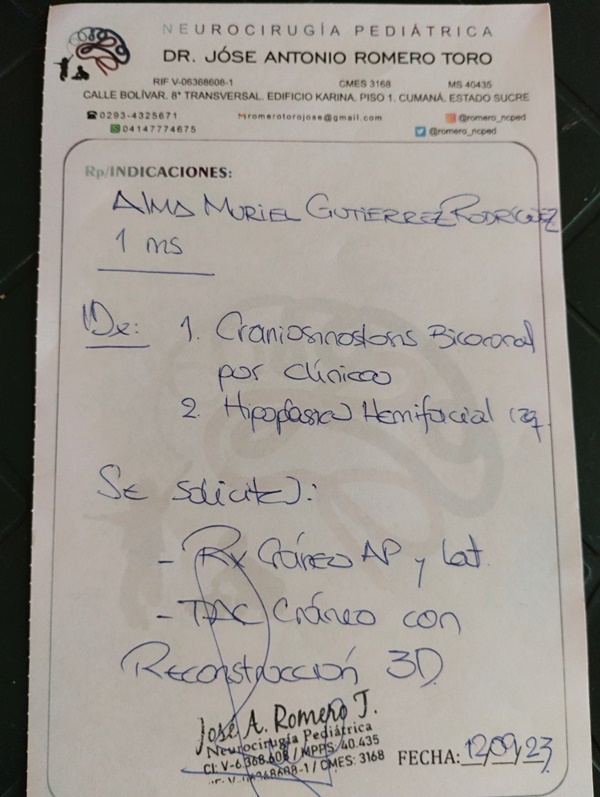 NEUROCIRUGÍA PEDIÁTRICA
DR. JÓSE ANTONIO ROMERO TORO
RIF V-06368608-1 CMES 3168 MS 40435
CALLE BOLÍVAR. 8ª TRANSVERSAL. EDIFICIO KARINA. PISO 1. CUMANÁ. ESTADO SUCRE
0293-4325671 romerotorojose@gmail.com @romero_ncped
04147774675 @romero_ncped
Rp/INDICACIONES:
Alma Muriel Gutierrez Rodríguez
1 ms
Dx: 1. Craniosinostosis Bicoronal
por clínica
2. Hipoplasia Hemifacial izq.
Se solicita:
- Rx Cráneo AP y Lat.
- TAC Cráneo con
Reconstrucción 3D
José A. Romero T.
Neurocirugía Pediátrica
CI: V-6.368.608 / MPPS: 40.435
-1 / CMES: 3168
FECHA: 12/09/23